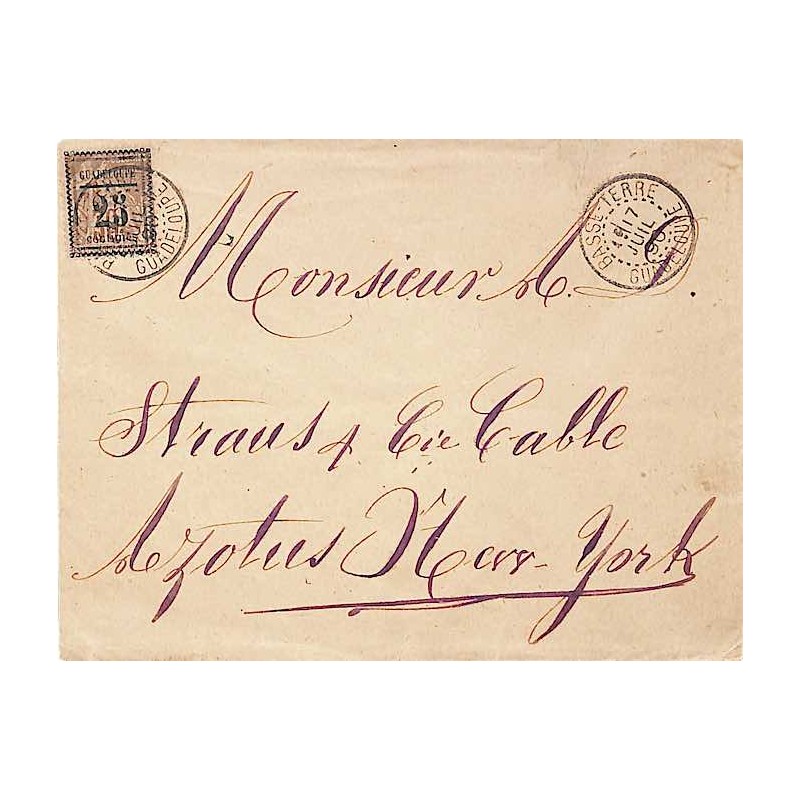 GUADELOUPE
25
CENTIMES
JUIL
GUADELOUPE
BASSE-TERRE
17
JUIL
90
GUADELOUPE
Monsieur A.
Straus & Cie Cable
Azotus New-York